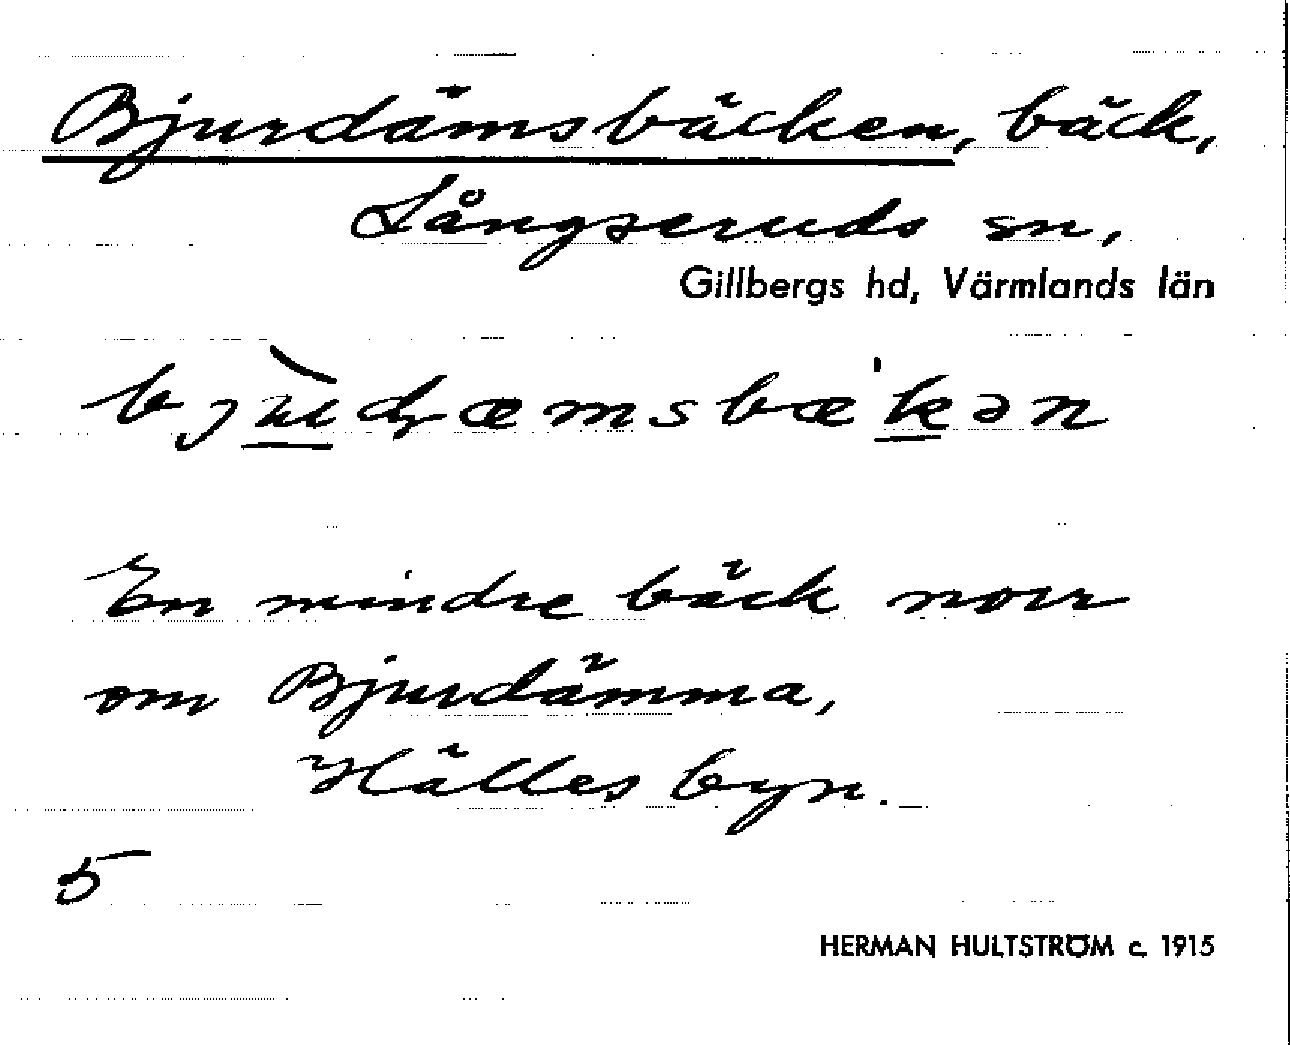 Bjurdämsbäcken, bäck,
Långseruds sn,
Gillbergs hd, Värmlands län
En mindre bäck norr
om Bjurdämma,
Hälles byn.
5
HERMAN HULTSTRÖM c. 1915